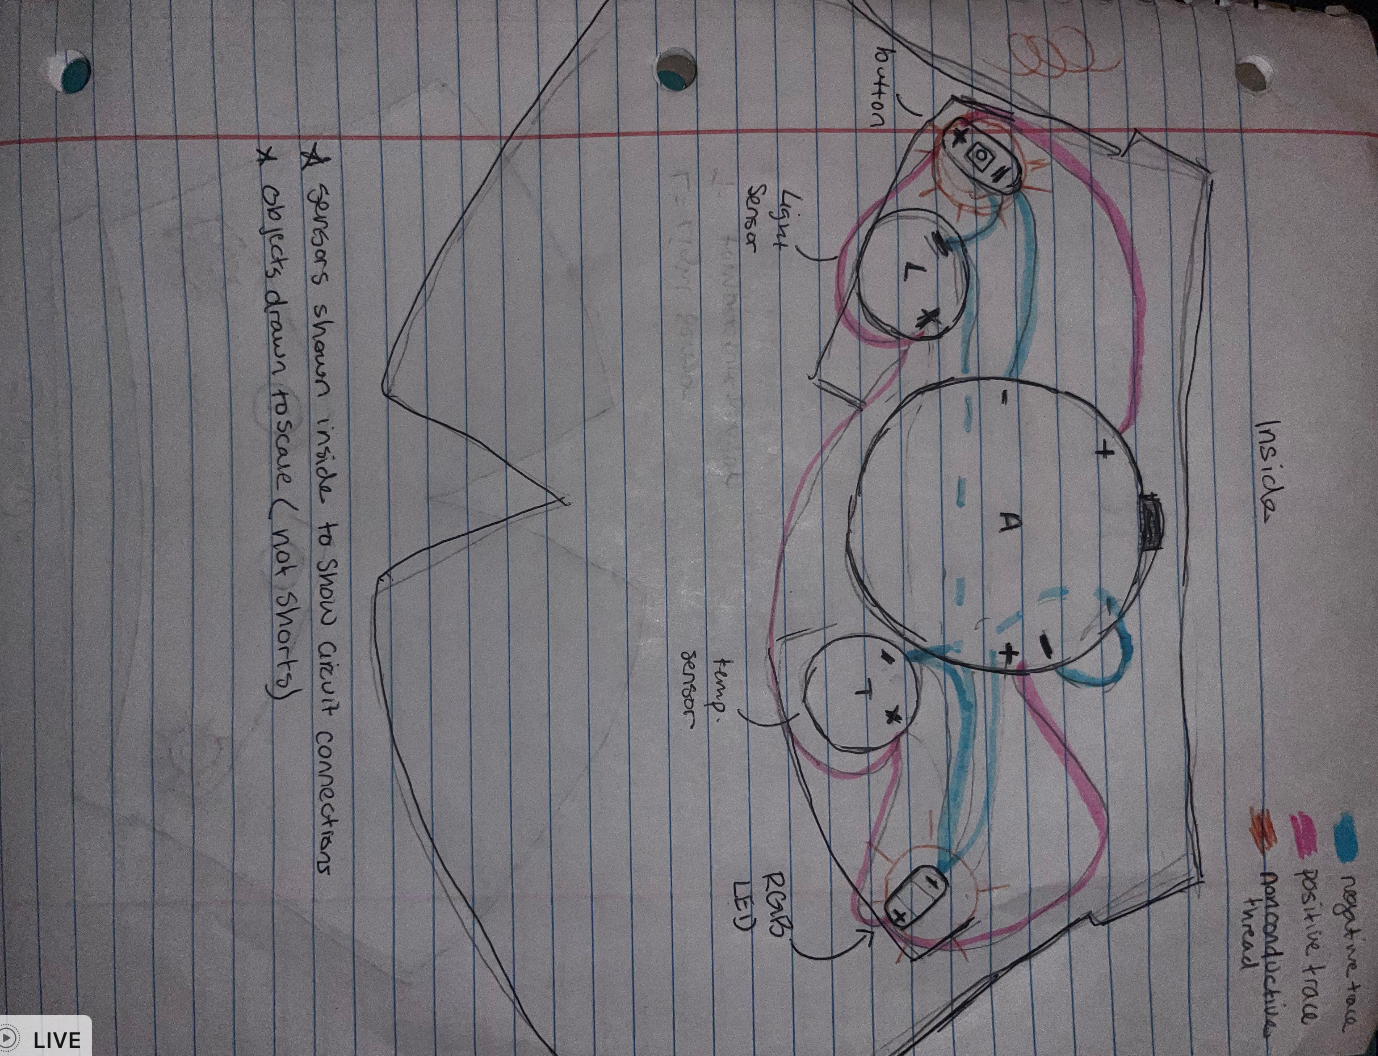 Inside
negative trace
positive trace
nonconductive
thread
button
Light
Sensor
L
A
T
temp.
sensor
RGB
LED
* sensors shown inside to show circuit connections
* objects drawn to scale (not shorts)
LIVE